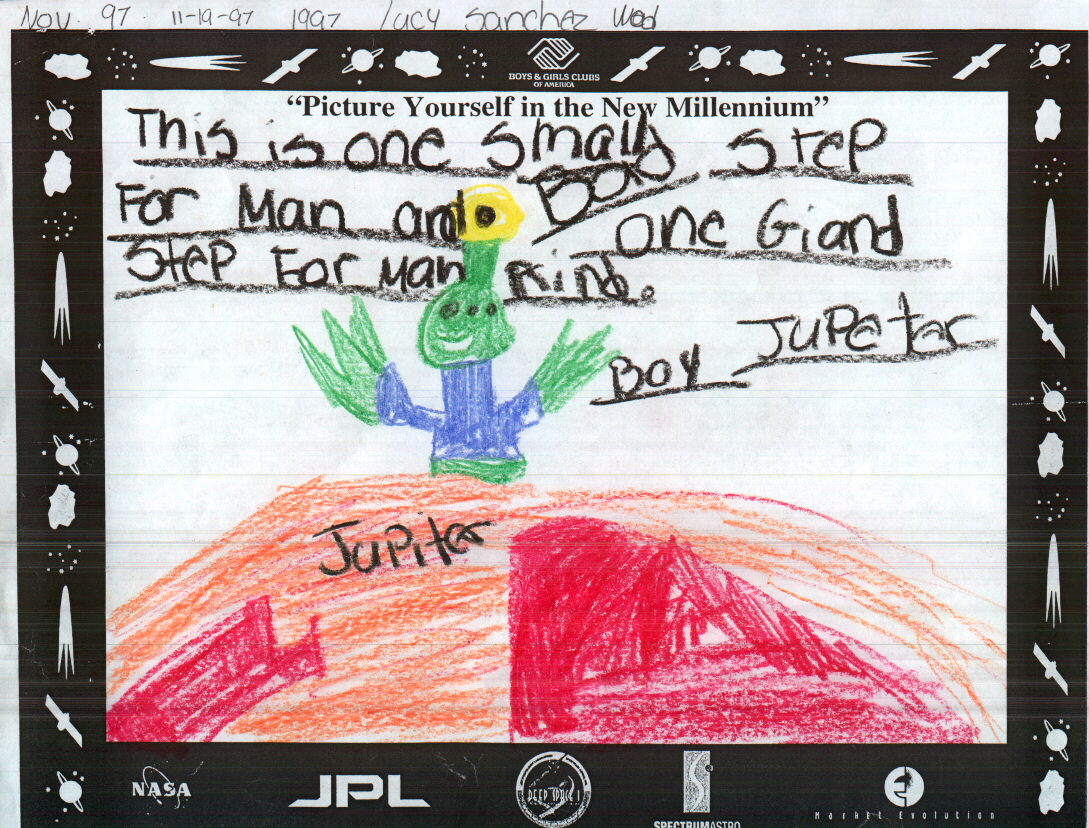 Nov. 97 11-19-97 1997 Lucy Sanchez Wed
BOYS & GIRLS CLUBS
OF AMERICA
"Picture Yourself in the New Millennium"
This is one Smally Step
For Man and Boy one Giand
Step For Man Kind.
Boy Jupetar
Jupiter
NASA
JPL
DEEP SPACE 1
SPECTRUMASTRO
Market Evolution